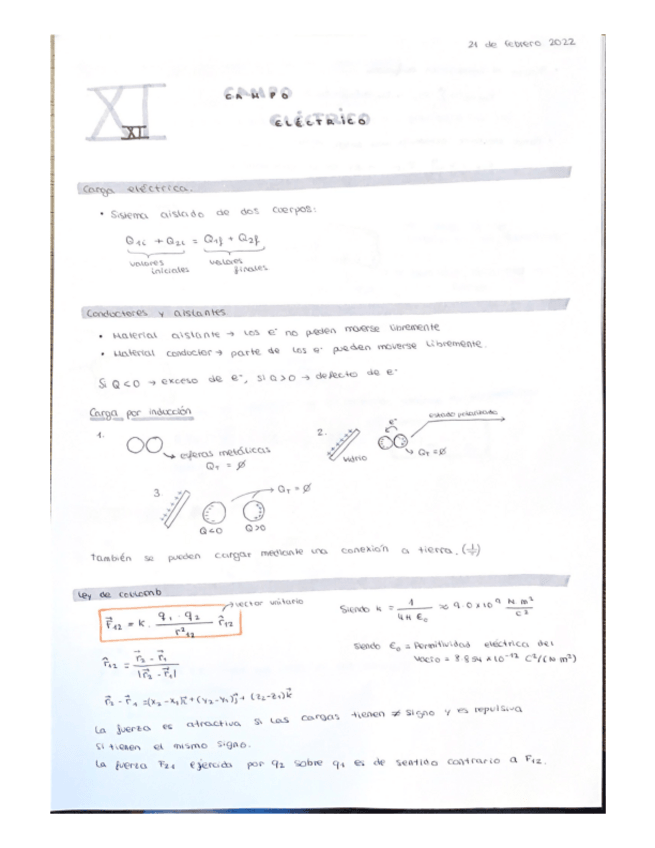 21 de febrero 2022
XI
XI
CAMPO
ELÉCTRICO
Carga eléctrica.
• Sistema aislado de dos cuerpos:
Q1i + Q2i = Q1f + Q2f
valores iniciales valores finales
Conductores y aislantes
• Material aislante → Los e⁻ no pueden moverse libremente
• Material conductor → parte de los e⁻ pueden moverse libremente.
Si Q<0 → exceso de e⁻, si Q>0 → defecto de e⁻
Carga por inducción
1.
→ esferas metálicas
QT = Ø
2.
vidrio
e⁻
estado polarizado
QT = Ø
3.
QT = Ø
Q<0 Q>0
También se pueden cargar mediante una conexión a tierra. (⏚)
Ley de Coulomb
vector unitario
F⃗12 = k · q1 · q2 / r²12 r̂12
Siendo k = 1 / 4π ε0 ≈ 9.0 x 10⁹ N m² / C²
r̂12 = r⃗2 - r⃗1 / |r⃗2 - r⃗1|
Siendo ε0 = Permitividad eléctrica del
vacío = 8.854 x 10⁻¹² C²/(N m²)
r⃗2 - r⃗1 = (x2-x1)i⃗ + (y2-y1)j⃗ + (z2-z1)k⃗
La fuerza es atractiva si las cargas tienen ≠ signo y es repulsiva
si tienen el mismo signo.
La fuerza F21 ejercida por q2 sobre q1 es de sentido contrario a F12.